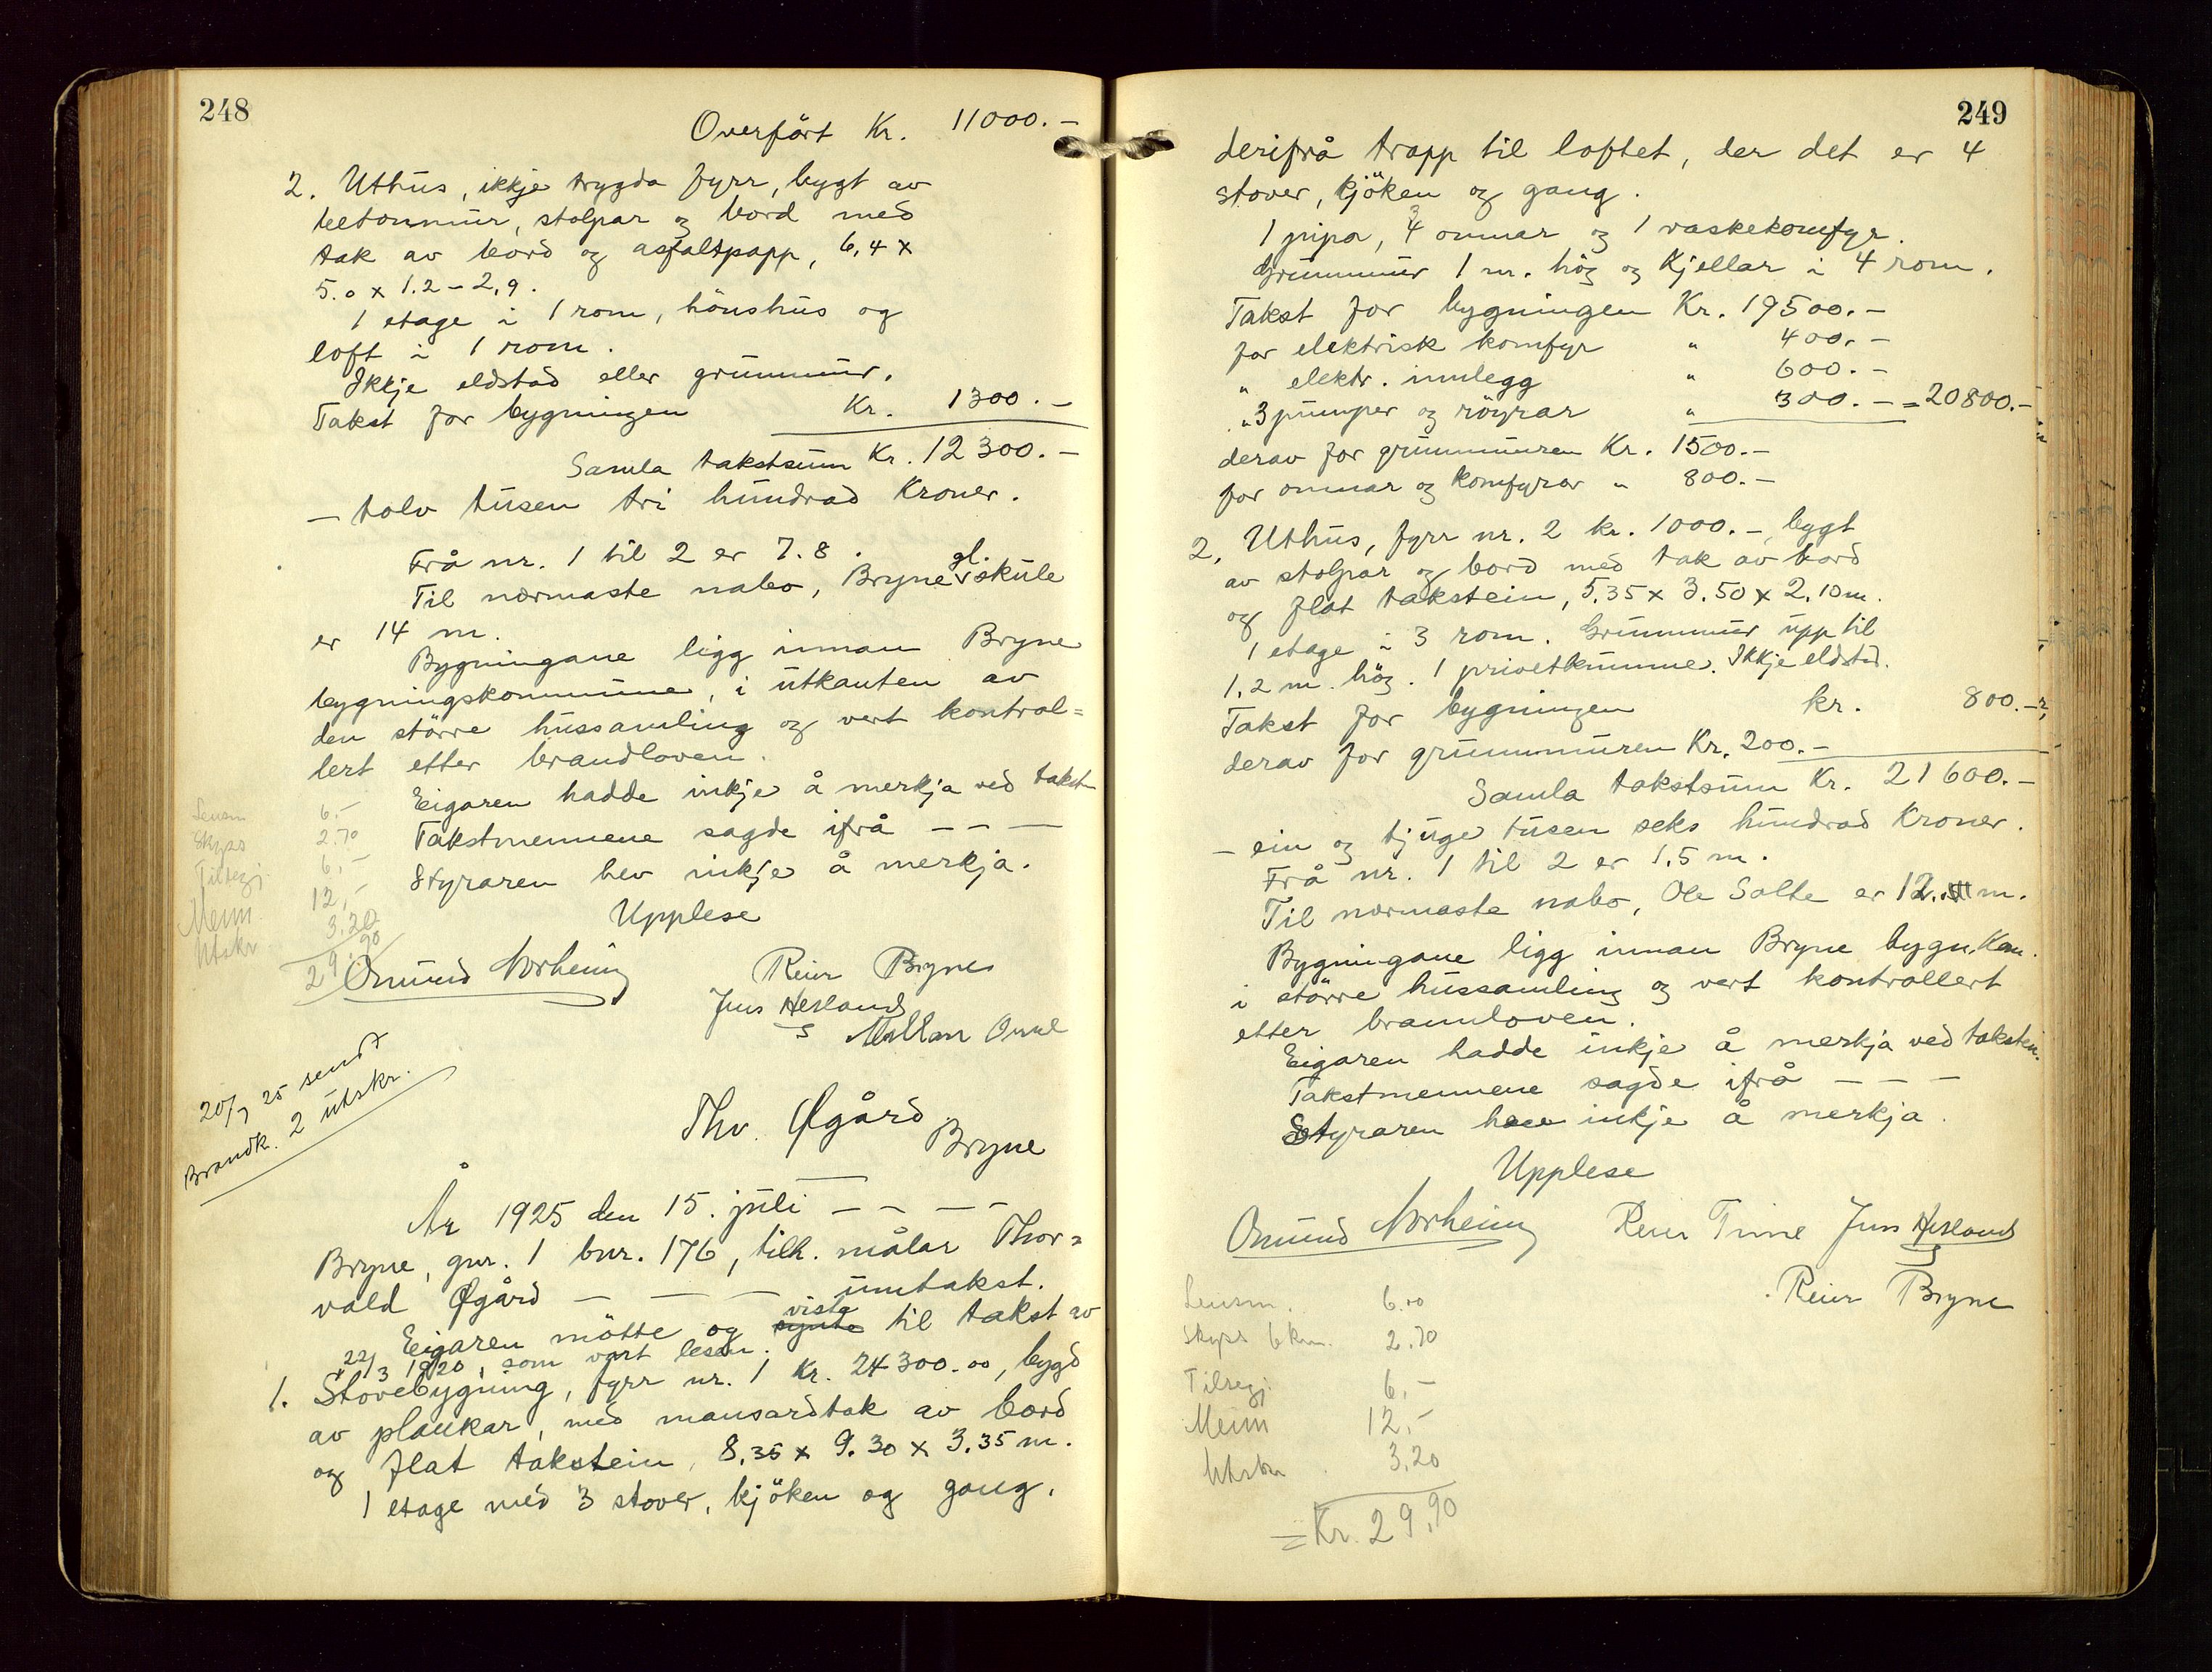 248
Overfört Kr. 11000.-
2. Uthus, ikkje trygda fyrr, bygt av
betonmur, stolpar og bord med
tak av bord og asfaltpapp, 6,4 x
5.0 x 1.2 - 2,9.
1 etage i 1 rom, hönshus og
loft i 1 rom.
Ikkje eldstad eller grunnmur.
Takst for bygningen Kr. 1300.-
Samla takstsum Kr. 12300.-
- tolv tusen tri hundrad Kroner.
Frå nr. 1 til 2 er 7.8.
Til nærmaste nabo, Bryne gl. skule
er 14 m.
Bygningane ligg innan Bryne
bygningskommune, i utkanten av
den större hussamling og vert kontrol=
lert etter brandloven.
Eigaren hadde inkje å merkja ved takst
Takstmennene sagde ifrå - - -
Styraren hev inkje å merkja.
Upplese
Lensm. 6.-
Skyss 2.70
Tilsegj. 6,-
Menn 12,-
Utskr 3.20
29.90
Omund Norheim Reier Bryne
Jens Hersland
20/7 25 sendt
Brandk. 2 utskr.
Thv. Øgård
Bryne
År 1925 den 15. juli - - - -
Bryne, gnr. 1 bnr. 176, tilh. målar Thor=
vald Øgård - - - umtakst.
Eigaren mötte og synte viste til takst av
22/3 1920, som vart lesen.
1. Stovebygning, fyrr nr. 1 Kr. 24300.00, bygd
av plankar, med mansardtak av bord
og flat takstein, 8,35 x 9.30 x 3.35 m.
1 etage med 3 stover, kjöken og gang,
249
derifrå trapp til loftet, der det er 4
stover, kjöken og gang.
1 pipa, 3 4 omnar og 1 vaskekomfyr.
Grunnmur 1 m. hög og kjellar i 4 rom.
Takst for bygningen Kr. 19500.-
for elektrisk komfyr " 400.-
" elektr. innlegg " 600.-
" 3 pumper og röyrar " 300.- = 20800.-
derav for grunnmuren Kr. 1500.-
for omnar og komfyrar " 800.-
2. Uthus, fyrr nr. 2 kr. 1000.-, bygt
av stolpar og bord med tak av bord
og flat takstein, 5.35 x 3.50 x 2.10 m.
1 etage i 3 rom. Grunnmur upp til
1,2 m. hög. 1 privetkumme. Ikkje eldstad.
Takst for bygningen kr. 800.-
derav for grunnmuren Kr. 200.-
Samla takstsum Kr. 21600.-
- ein og tjuge tusen seks hundrad Kroner.
Frå nr. 1 til 2 er 1.5 m.
Til nærmaste nabo, Ole Salte er 12. m.
Bygningane ligg innan Bryne bygn. Kom.
i större hussamling og vert kontrollert
etter brannloven.
Eigaren hadde inkje å merkja ved taksten.
Takstmennene sagde ifrå - - -
Styraren hev inkje å merkja.
Upplese
Omund Norheim Reier Time Jens Hersland
Reier Bryne
Lensm. 6.00
Skyss 6 km. 2.70
Tilsegj. 6,-
Menn 12,-
Utskr 3,20
= Kr. 29,90